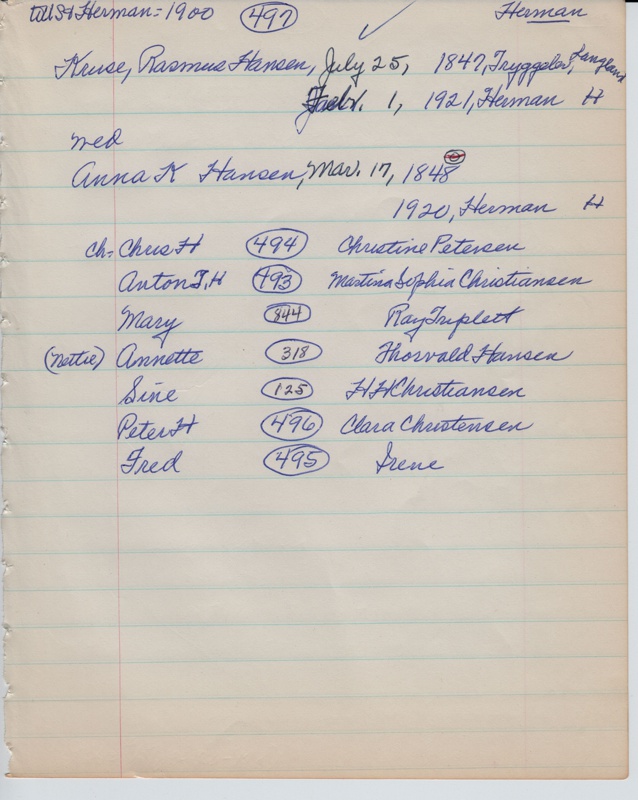 till St Herman = 1900 497 Herman
Kruse, Rasmus Hansen, July 25, 1847, Tryggelev, Langland
Febr. 1, 1921, Herman H
wed
Anna K Hansen, Mar. 17, 1848
1920, Herman H
ch = Chris H 494 Christine Petersen
Anton T. H 493 Martina Sophia Christiansen
Mary 844 Ray Triplett
(Nettie) Annette 318 Thorvald Hansen
Sine 125 H H Christiansen
Peter H 496 Clara Christensen
Fred 495 Irene